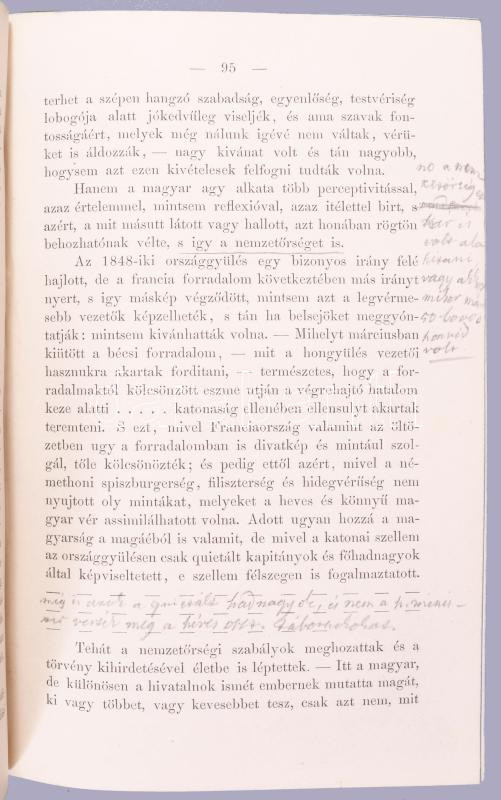 — 95 —
terhet a szépen hangzó szabadság, egyenlőség, testvériség
lobogója alatt jókedvüleg viseljék, és ama szavak fon-
tosságáért, melyek még nálunk igévé nem váltak, vérü-
ket is áldozzák, — nagy kivánat volt és tán nagyobb,
hogysem azt ezen kivételesek felfogni tudták volna.
Hanem a magyar agy alkata több perceptivitással,
azaz értelemmel, mintsem reflexióval, azaz itélettel birt, s
azért, a mit másutt látott vagy hallott, azt honában rögtön
behozhatónak vélte, s igy a nemzetőrséget is.
Az 1848-iki országgyülés egy bizonyos irány felé
hajlott, de a francia forradalom következtében más irányt
nyert, s igy máskép végződött, mintsem azt a legvérme-
sebb vezetők képzelheték, s tán ha belsejöket meggyón-
tatják: mintsem kivánhatták volna. — Mihelyt márciusban
kiütött a bécsi forradalom, — mit a hongyülés vezetői
hasznukra akartak forditani, — természetes, hogy a for-
radalmaktól kölcsönzött eszme utján a végrehajtó hatalom
keze alatti . . . . . katonaság ellenében ellensulyt akartak
teremteni. S ezt, mivel Franciaország valamint az öltö-
zetben ugy a forradalomban is divatkép és mintául szol-
gál, tőle kölcsönözték; és pedig ettől azért, mivel a né-
methoni spiszburgerség, filiszterség és hidegvérüség nem
nyujtott oly mintákat, melyeket a heves és könnyű ma-
gyar vér assimilálhatott volna. Adott ugyan hozzá a ma-
gyarság a magáéból is valamit, de mivel a katonai szellem
az országgyülésen csak quietált kapitányok és főhadnagyok
által képviseltetett, e szellem félszegen is fogalmaztatott.
no a nem
is
volt
vagy
50
honvéd
volt
még is a quietált hadnagyok, és nem a
meg a hires
Tehát a nemzetőrségi szabályok meghozattak és a
törvény kihirdetésével életbe is léptettek. — Itt a magyar,
de különösen a hivatalnok ismét embernek mutatta magát,
ki vagy többet, vagy kevesebbet tesz, csak azt nem, mit